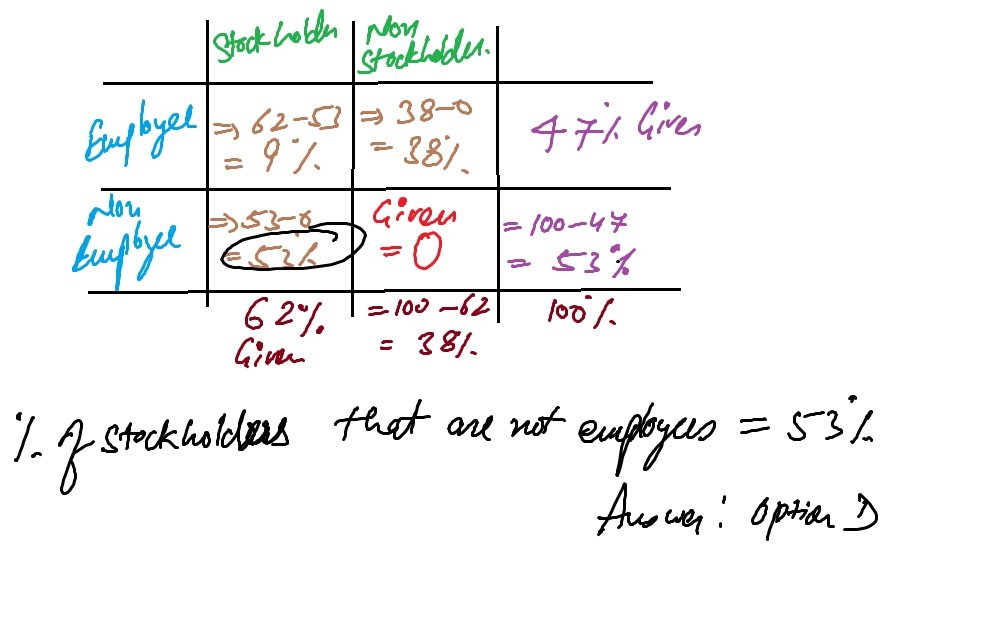 Stockholder
Non
Stockholder.
Employee
⇒ 62-53
= 9%
⇒ 38-0
= 38%
47% Given
Non
Employee
⇒ 53-0
= 53%
Given
= 0
= 100-47
= 53%
62%
Given
= 100-62
= 38%
100%
% of stockholders that are not employees = 53%
Answer: Option D